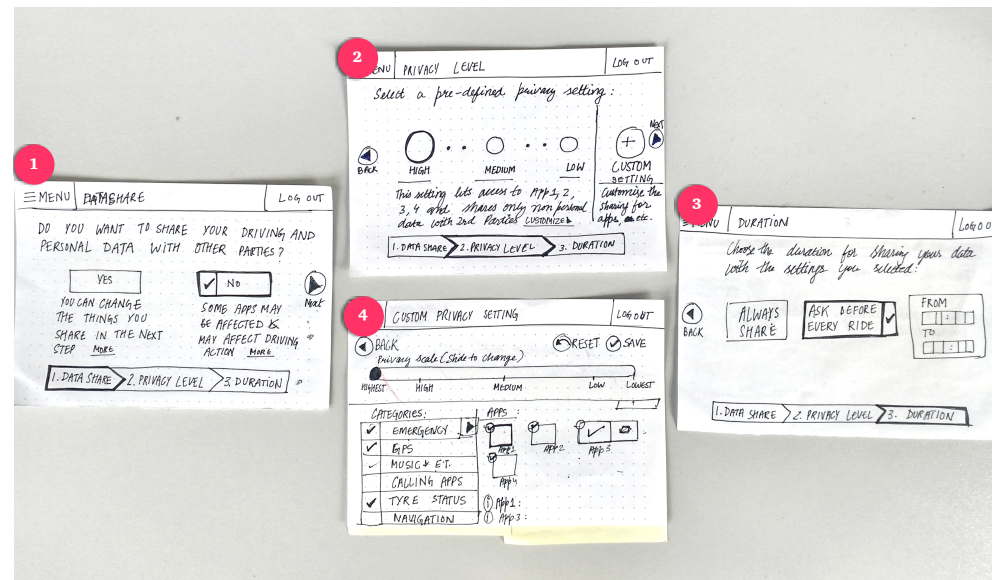 1
MENU DATASHARE LOG OUT
DO YOU WANT TO SHARE YOUR DRIVING AND
PERSONAL DATA WITH OTHER PARTIES?
YES
YOU CAN CHANGE
THE THINGS YOU
SHARE IN THE NEXT
STEP MORE
NO
SOME APPS MAY
BE AFFECTED &
MAY AFFECT DRIVING
ACTION MORE
Next
1. DATA SHARE 2. PRIVACY LEVEL 3. DURATION
2
ENU PRIVACY LEVEL LOG OUT
Select a pre-defined privacy setting:
BACK
HIGH MEDIUM LOW
This setting lets access to App1, 2,
3, 4 and shares only non personal
data with 2nd Parties CUSTOMIZE
NEXT
CUSTOM
SETTING
Customize the
sharing for
apps, etc.
1. DATA SHARE 2. PRIVACY LEVEL 3. DURATION
3
ENU DURATION LOG O
Choose the duration for sharing your data
with the settings you selected:
BACK
ALWAYS
SHARE
ASK BEFORE
EVERY RIDE
FROM
:
TO
:
1. DATA SHARE 2. PRIVACY LEVEL 3. DURATION
4
CUSTOM PRIVACY SETTING LOG OUT
BACK RESET SAVE
Privacy scale (Slide to change)
HIGHEST HIGH MEDIUM LOW LOWEST
CATEGORIES:
EMERGENCY
GPS
MUSIC & ET.
CALLING APPS
TYRE STATUS
NAVIGATION
APPS :
App1 App2 App3
App4
i App1:
i App3: